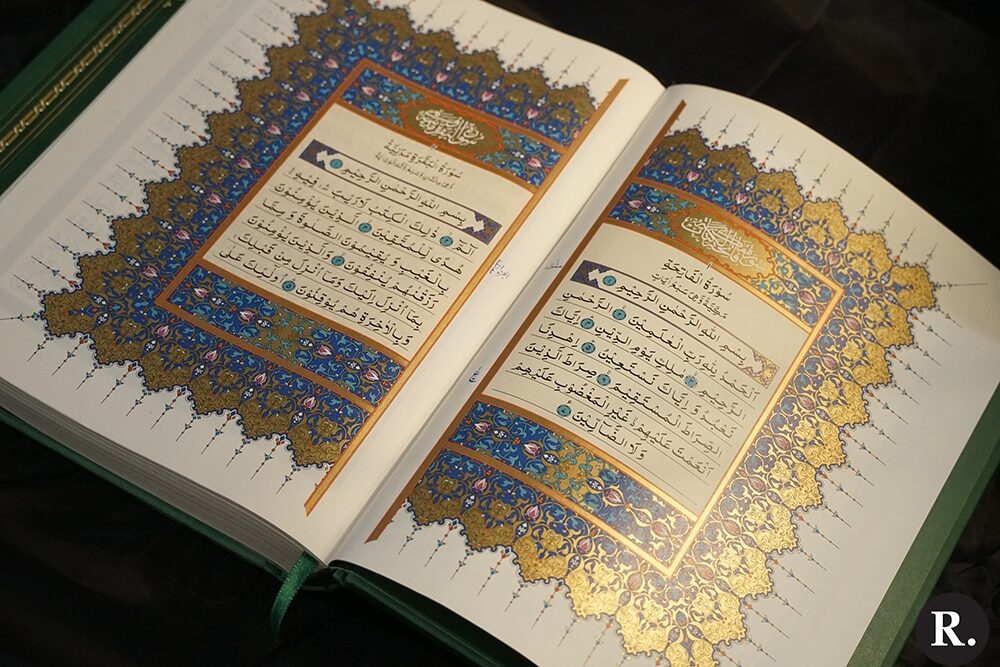 سُورَةُ الْفَاتِحَةِ
مَكِّيَّةٌ وَهِيَ سَبْعُ آيَاتٍ
بِسْمِ اللهِ الرَّحْمٰنِ الرَّحِيمِ ١
اَلْحَمْدُ لِلّٰهِ رَبِّ الْعَالَمِينَ ٢ اَلرَّحْمٰنِ
الرَّحِيمِ ٣ مَالِكِ يَوْمِ الدِّينِ ٤ اِيَّاكَ
نَعْبُدُ وَ اِيَّاكَ نَسْتَعِينُ ٥ اِهْدِنَا
الصِّرَاطَ الْمُسْتَقِيمَ ٦ صِرَاطَ الَّذِينَ
اَنْعَمْتَ عَلَيْهِمْ غَيْرِ الْمَغْضُوبِ عَلَيْهِمْ
وَلَا الضَّالِّينَ ٧
سُورَةُ الْبَقَرَةِ مَدَنِيَّةٌ
بِسْمِ اللهِ الرَّحْمٰنِ الرَّحِيمِ
الٓمٓ ذٰلِكَ الْكِتَابُ لَا رَيْبَ فِيهِ
هُدًى لِلْمُتَّقِينَ اَلَّذِينَ يُؤْمِنُونَ
بِالْغَيْبِ وَ يُقِيمُونَ الصَّلٰوةَ وَ مِمَّا
رَزَقْنَاهُمْ يُنْفِقُونَ وَ الَّذِينَ يُؤْمِنُونَ
بِمَا اُنْزِلَ اِلَيْكَ وَ مَا اُنْزِلَ مِنْ قَبْلِكَ
وَ بِالْاٰخِرَةِ هُمْ يُوقِنُونَ اُولٰئِكَ عَلٰى
R.